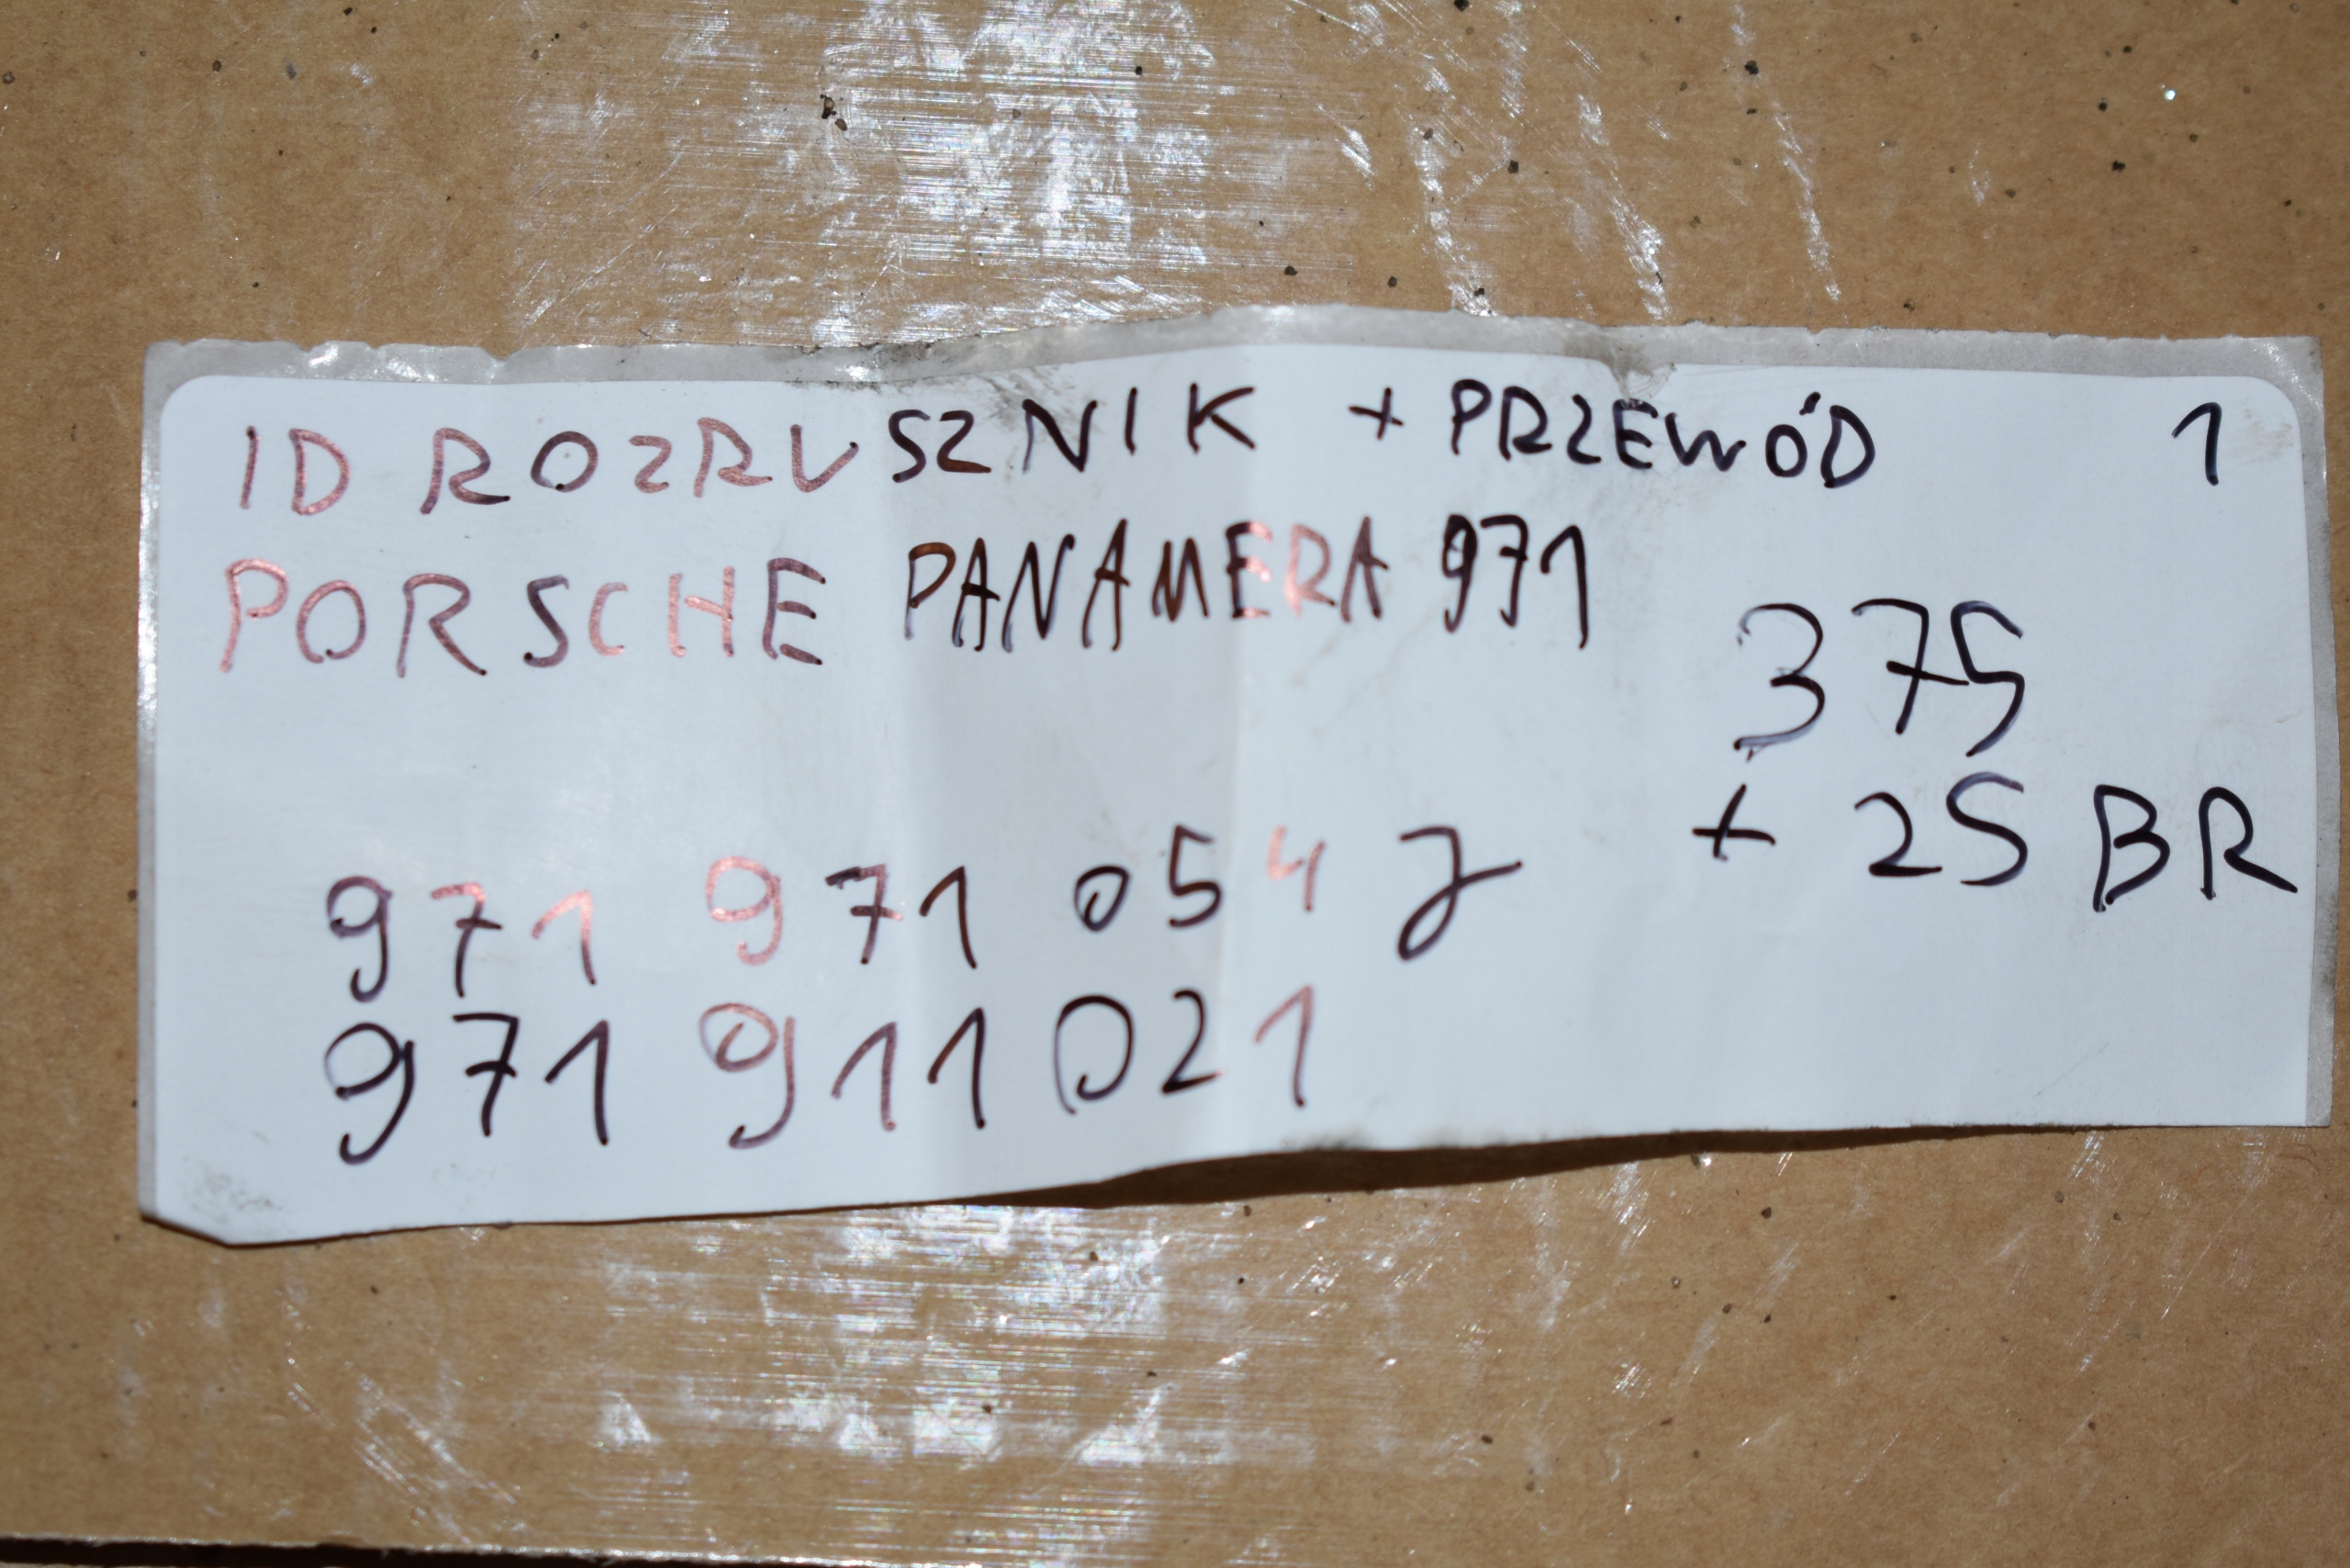 ID ROZRUSZNIK + PRZEWÓD 1
PORSCHE PANAMERA 971
375
+ 25 BR
971 971 054 J
971 911 021